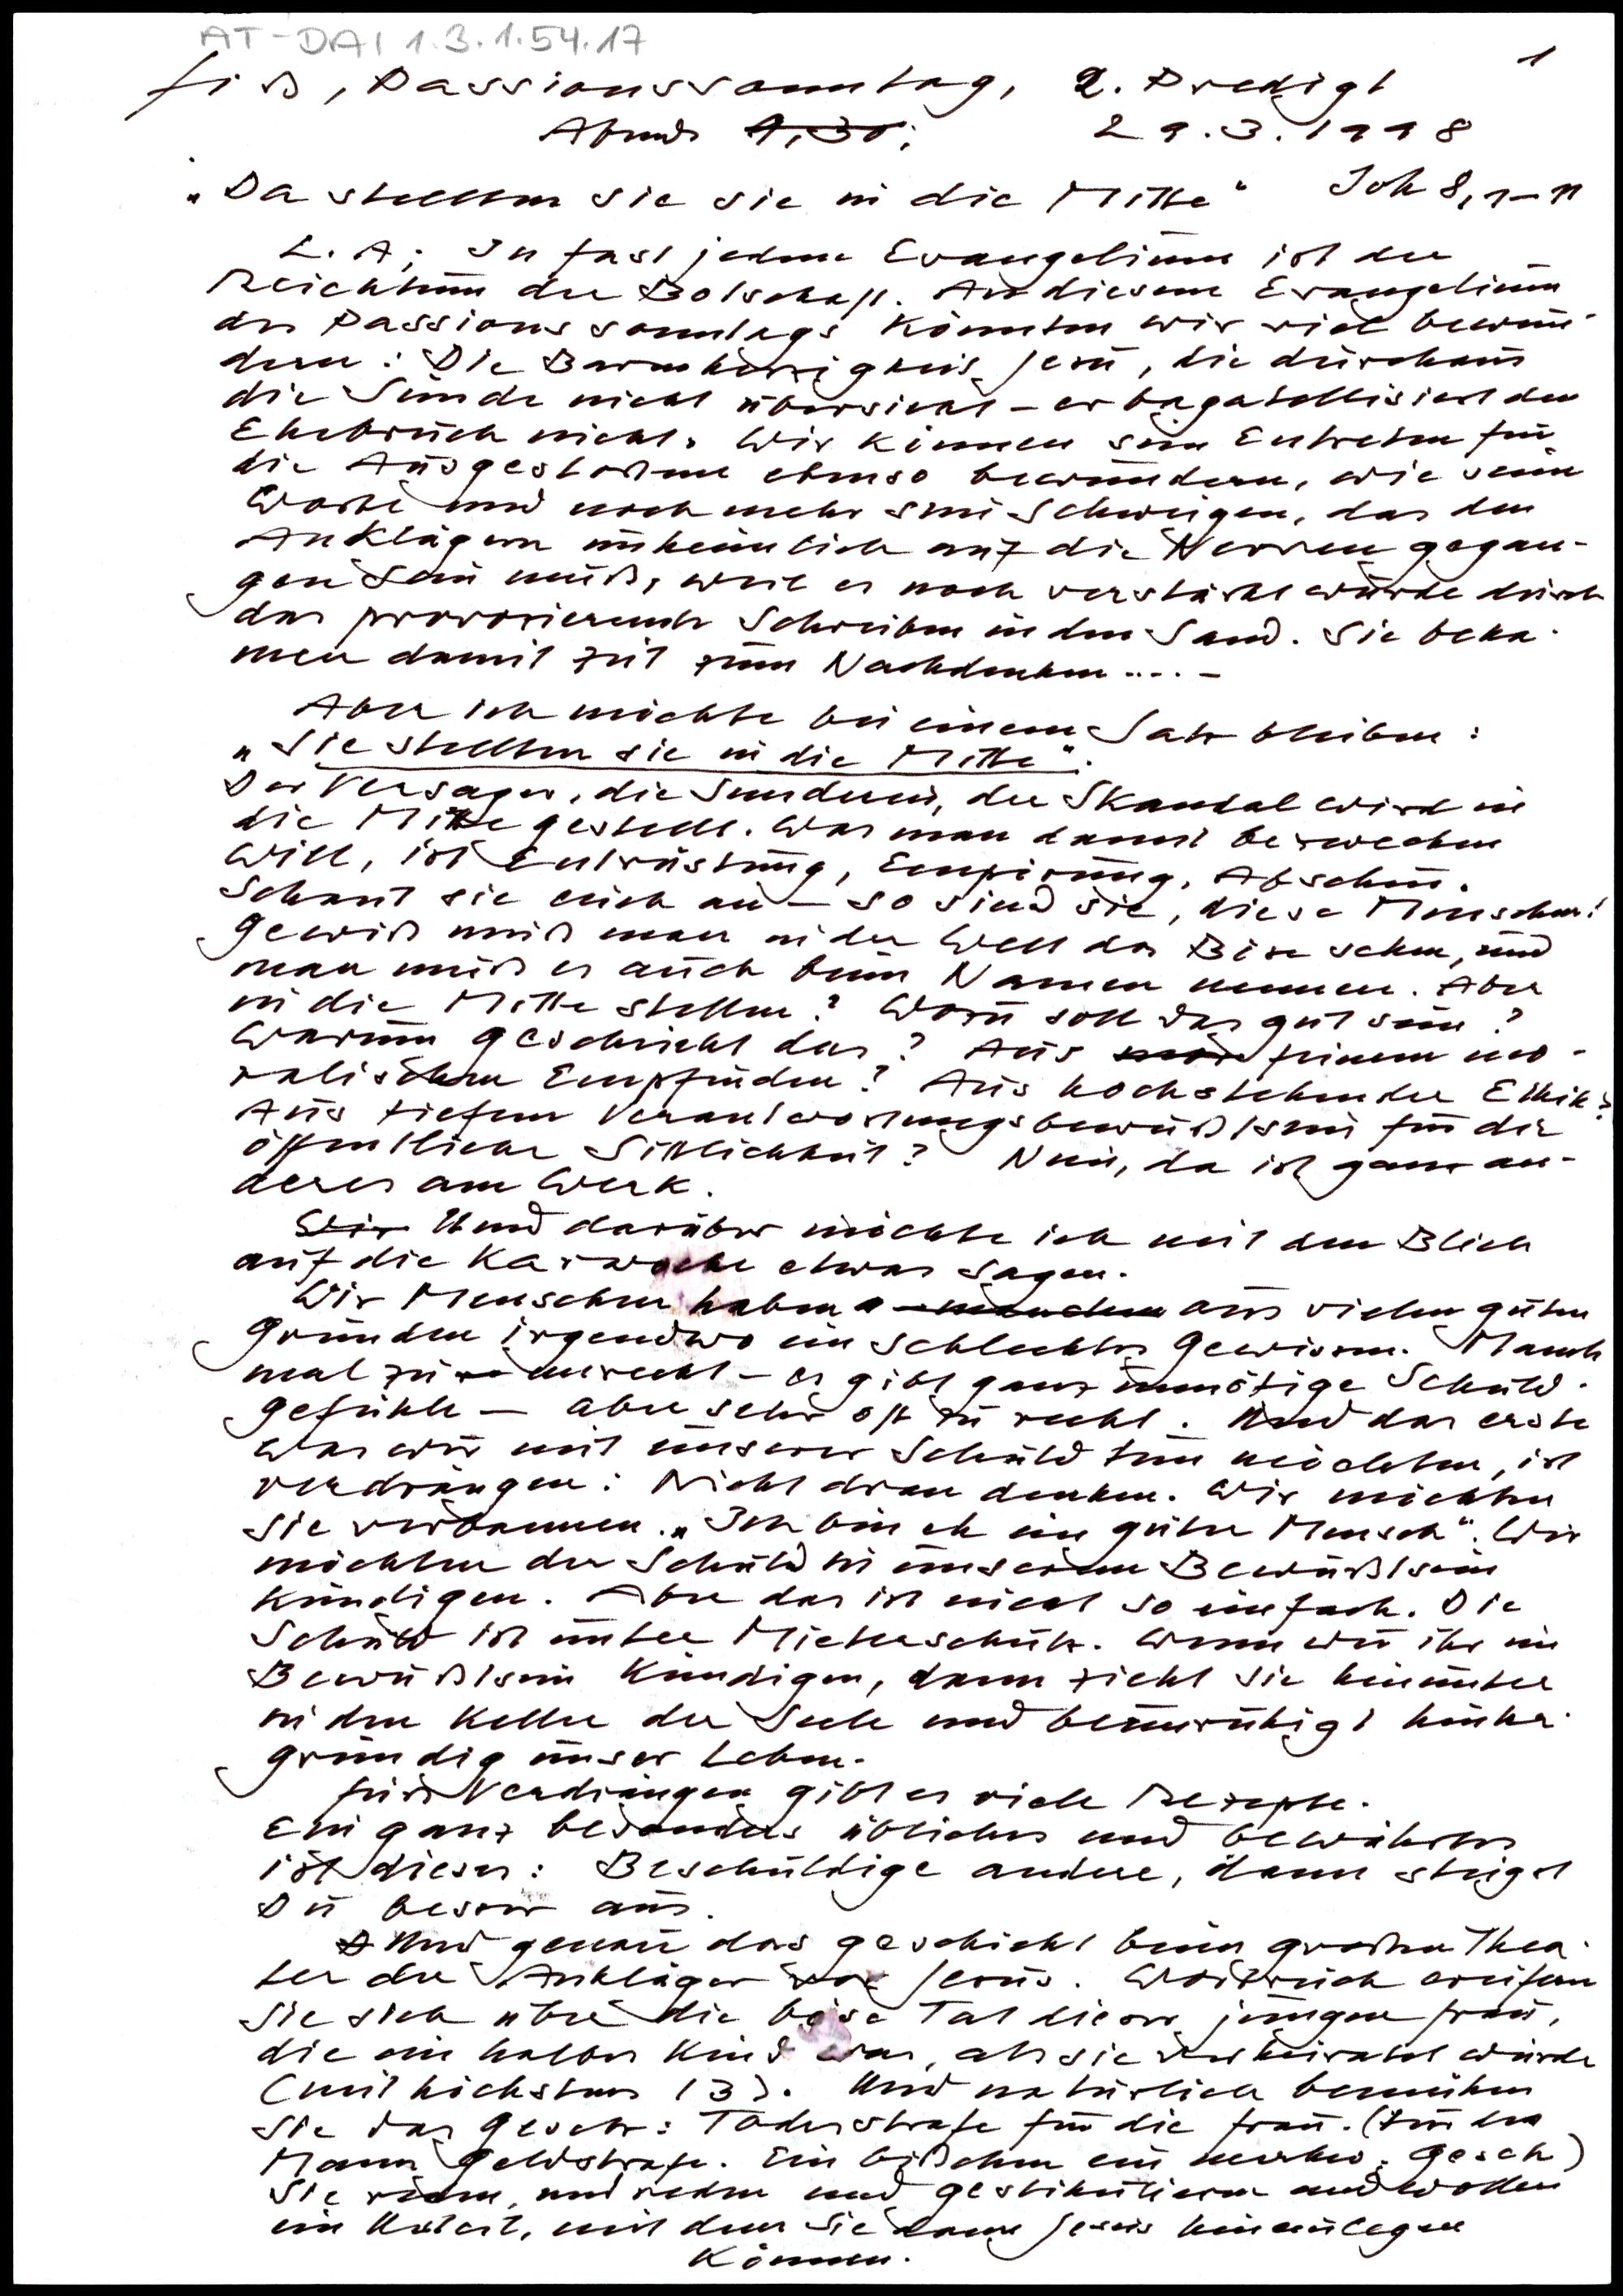 AT-DAI 1.3.1.54.17
1
Fiß, Passionssonntag, 2. Predigt
Abends 9,30; 29.3.1998
"Da stellten sie sie in die Mitte" Joh 8,1-11
L. A; In fast jedem Evangelium ist der
Reichtum der Botschaft. An diesem Evangelium
des Passionssonntags könnten wir viel bewun-
dern: Die Barmherzigkeit Jesu, die durchaus
die Sünde nicht übersieht - er bagatellisiert den
Ehebruch nicht. Wir können sein Entreten für
die Ausgestoßene ebenso bewundern, wie seine
Worte und noch mehr sein Schweigen, das den
Anklägern unheimlich auf die Nerven gegan-
gen sein muß, weil es noch verstärkt wurde durch
das provozierende Schreiben in den Sand. Sie beka-
men damit Zeit zum Nachdenken.... -
Aber ich möchte bei einem Satz bleiben:
"Sie stellten sie in die Mitte".
Der Versager, die Sünderin, der Skandal wird in
die Mitte gestellt. Was man damit bezwecken
will, ist Entrüstung, Empörung, Abscheu.
Schaut sie euch an - so sind sie, diese Menschen!
Gewiß muß man in der Welt das Böse sehen, und
man muß es auch beim Namen nennen. Aber
in die Mitte stellen? Wozu soll das gut sein?
Warum geschieht das? Aus feinem mo-
ralischen Empfinden? Aus hochstehender Ethik?
Aus tiefem Verantwortungsbewußtsein für die
öffentliche Sittlichkeit? Nein, da ist ganz an-
deres am Werk.
Wir Und darüber möchte ich mit dem Blick
auf die Karwoche etwas sagen.
Wir Menschen haben aus vielen guten
Gründen irgendwo ein schlechtes Gewissen. Manch
mal zu unrecht - es gibt ganz unnötige Schuld-
gefühle - aber sehr oft zu recht. Und das erste
was wir mit unserer Schuld tun möchten, ist
verdrängen: Nicht dran denken. Wir möchten
sie verbannen. "Ich bin eh ein guter Mensch". Wir
möchten der Schuld in unserem Bewußtsein
kündigen. Aber das ist nicht so einfach. Die
Schuld ist unter Mieterschutz. Wenn wir ihr im
Bewußtsein kündigen, dann zieht sie hinunter
in den Keller der Seele und beunruhigt hinter-
gründig unser Leben.
Fürs Verdrängen gibt es viele Rezepte.
Ein ganz besonders übliches und bewährtes
ist dieses: Beschuldige andere, dann steigst
Du besser aus.
Und genau das geschieht beim großen Thea-
ter der Ankläger vor Jesus. Wortreich ereifern
sie sich über die böse Tat dieser jungen Frau,
die ein halbes Kind war, als sie verheiratet wurde
(mit höchstens 13). Und natürlich bemühen
sie das Gesetz: Todesstrafe für die Frau. (Für den
Mann Geldstrafe. Ein bißchen ein merkw. Gesetz)
Sie und reden und gestikulieren und wollen
ein Urteil, mit dem sie dann Jesus hineinlegen
können.